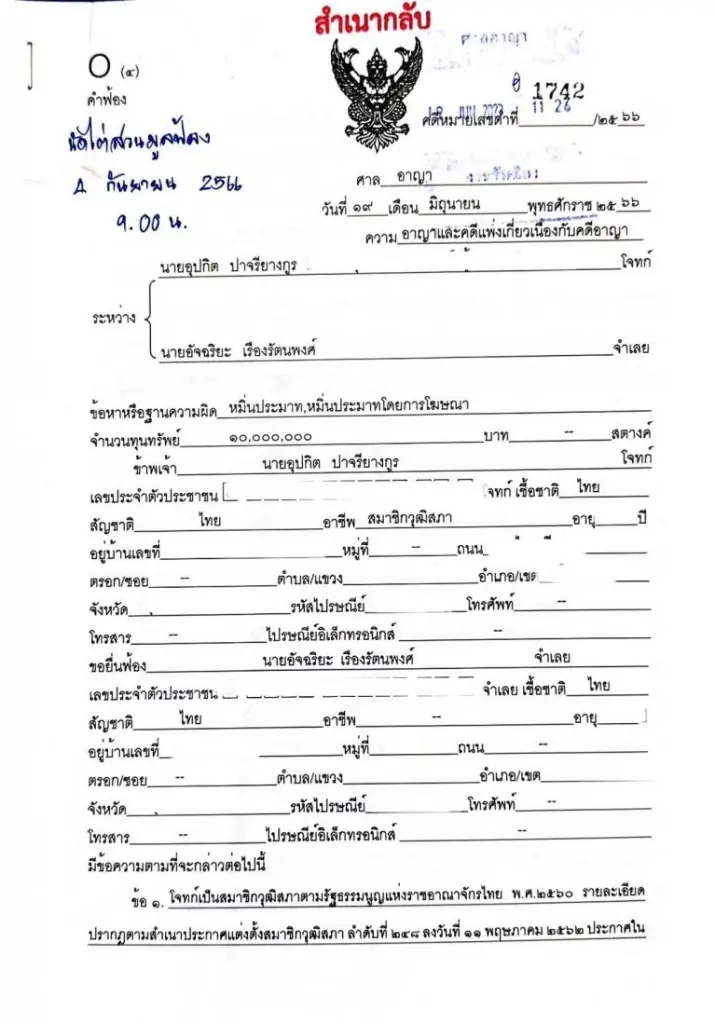 สำเนากลับ
ศาลอาญา
๐ (๔)
คำฟ้อง
อ 1742
คดีหมายเลขดำที่ /๒๕๖๖
11 26
นัดไต่สวนมูลฟ้อง
4 กันยายน 2566
9.00 น.
ศาล อาญา
วันที่ ๑๙ เดือน มิถุนายน พุทธศักราช ๒๕๖๖
ความ อาญาและคดีแพ่งเกี่ยวเนื่องกับคดีอาญา
นายอุปกิต ปาจรียางกูร โจทก์
ระหว่าง
นายอัจฉริยะ เรืองรัตนพงศ์ จำเลย
ข้อหาหรือฐานความผิด หมิ่นประมาท,หมิ่นประมาทโดยการโฆษณา
จำนวนทุนทรัพย์ ๑๐,๐๐๐,๐๐๐ บาท -- สตางค์
ข้าพเจ้า นายอุปกิต ปาจรียางกูร โจทก์
เลขประจำตัวประชาชน โจทก์ เชื้อชาติ ไทย
สัญชาติ ไทย อาชีพ สมาชิกวุฒิสภา อายุ ปี
อยู่บ้านเลขที่ หมู่ที่ -- ถนน
ตรอก/ซอย -- ตำบล/แขวง อำเภอ/เขต
จังหวัด รหัสไปรษณีย์ โทรศัพท์ --
โทรสาร -- ไปรษณีย์อิเล็กทรอนิกส์ --
ขอยื่นฟ้อง นายอัจฉริยะ เรืองรัตนพงศ์ จำเลย
เลขประจำตัวประชาชน จำเลย เชื้อชาติ ไทย
สัญชาติ ไทย อาชีพ -- อายุ
อยู่บ้านเลขที่ หมู่ที่ ถนน --
ตรอก/ซอย -- ตำบล/แขวง อำเภอ/เขต
จังหวัด รหัสไปรษณีย์ โทรศัพท์ --
โทรสาร -- ไปรษณีย์อิเล็กทรอนิกส์ --
มีข้อความตามที่จะกล่าวต่อไปนี้
ข้อ ๑. โจทก์เป็นสมาชิกวุฒิสภาตามรัฐธรรมนูญแห่งราชอาณาจักรไทย พ.ศ.๒๕๖๐ รายละเอียด
ปรากฏตามสำเนาประกาศแต่งตั้งสมาชิกวุฒิสภา ลำดับที่ ๒๔๘ ลงวันที่ ๑๑ พฤษภาคม ๒๕๖๒ ประกาศใน